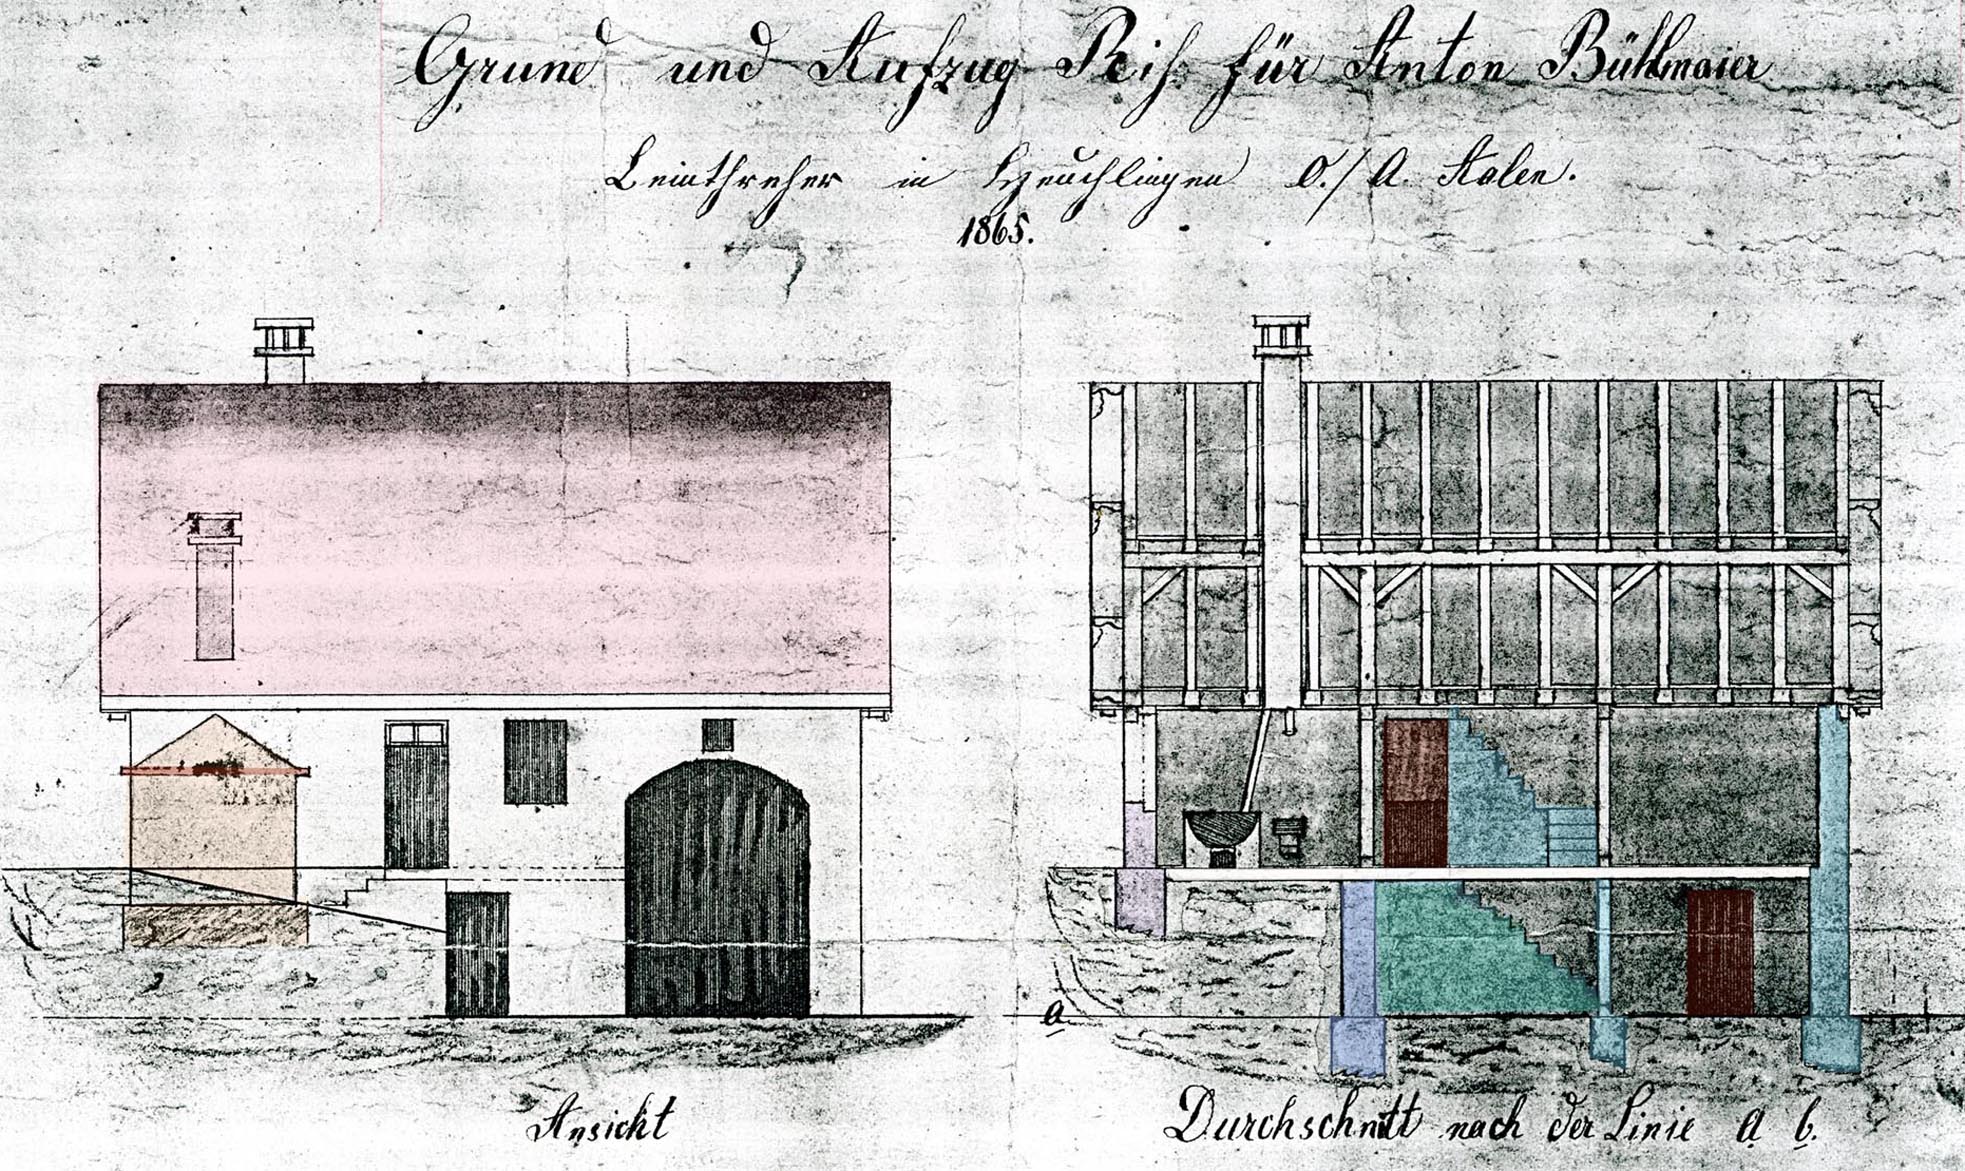 Grund und Aufzug Riß. für Anton Bühlmaier
in Heuchlingen O./A. Aalen.
1865.
a
Ansicht
Durchschnitt nach der Linie a b.